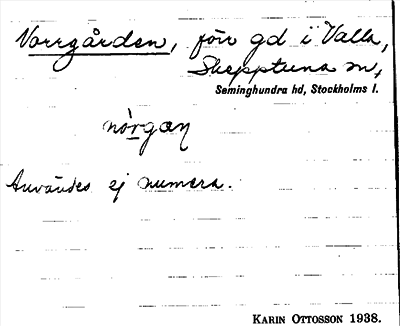 Norrgården, för gd i Valla,
Skepptuna sn,
Seminghundra hd, Stockholms l.
nòrgan
Användes ej numera.
KARIN OTTOSSON 1938.